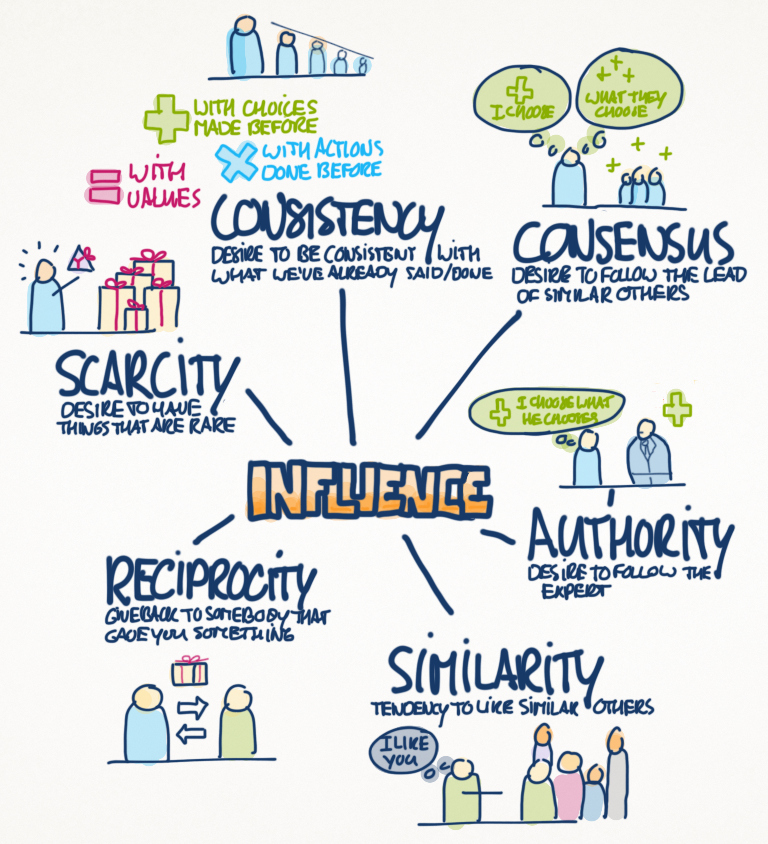 WITH CHOICES
MADE BEFORE
WITH ACTIONS
DONE BEFORE
WITH
VALUES
CONSISTENCY
DESIRE TO BE CONSISTENT WITH
WHAT WE'VE ALREADY SAID/DONE
I CHOOSE
WHAT THEY
CHOOSE
CONSENSUS
DESIRE TO FOLLOW THE LEAD
OF SIMILAR OTHERS
SCARCITY
DESIRE TO HAVE
THINGS THAT ARE RARE
I CHOOSE WHAT
HE CHOOSES
INFLUENCE
AUTHORITY
DESIRE TO FOLLOW THE
EXPERT
RECIPROCITY
GIVE BACK TO SOMEBODY THAT
GAVE YOU SOMETHING
SIMILARITY
TENDENCY TO LIKE SIMILAR OTHERS
I LIKE
YOU